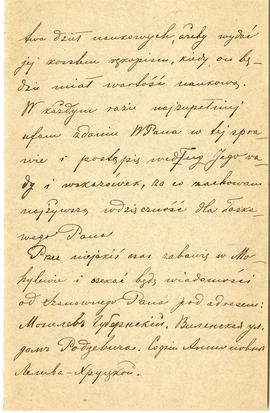 twa dzieł naukowych, ażeby wydać
jej kosztem rękopism, kiedy on bę-
dzie miał wartość naukową.
W każdym razie najzupełniej
ufam zdaniu WPana w tej spra-
wie i postąpię według Jego ra-
dy i wskazówek, za co zachowam
najżywszą wdzięczność dla Łaska-
wego Pana
Przez niejakiś czas zabawię w Mo-
hylewie i czekać będę wiadomości
od Szanownego Pana pod adresem:
Могилевъ Губернскій, Виленская ул.
домъ Родзевича. Софіи Антоновнѣ
Лелива-Хруцкой.